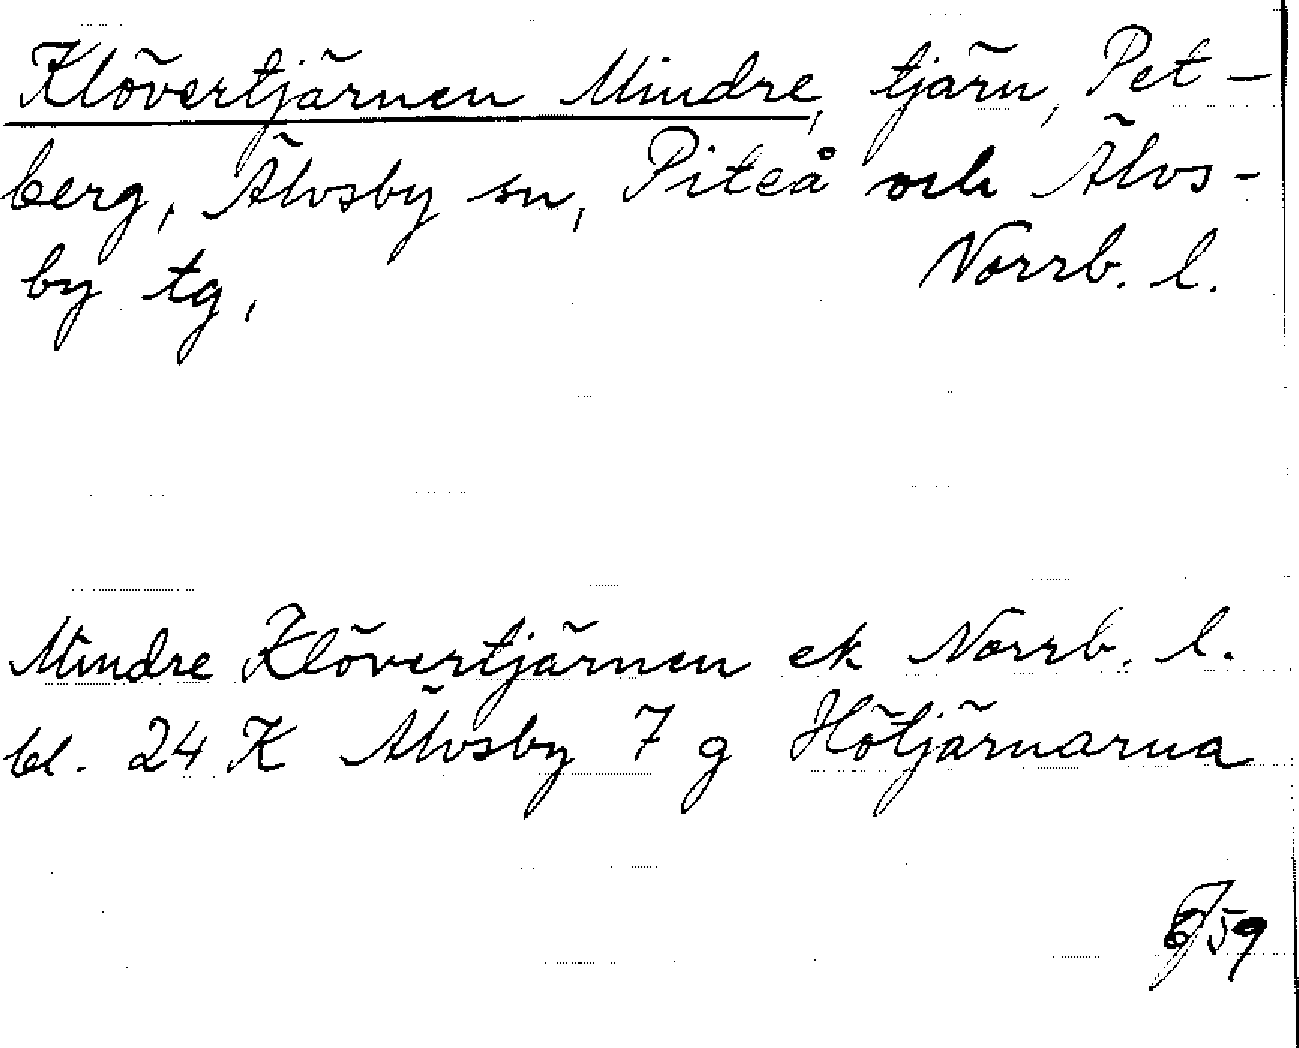 Klövertjärnen Mindre, tjärn, Pet-
berg, Älvsby sn, Piteå och Älvs-
by tg, Norrb. l.
Mindre Klövertjärnen ek Norrb. l.
bl. 24 K Älvsby 7 g Hötjärnarna
59